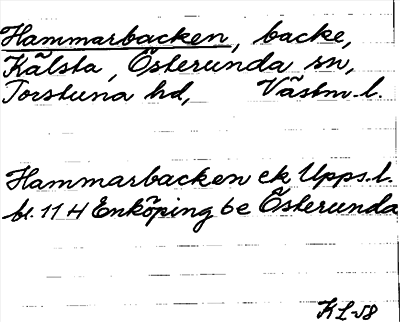 Hammarbacken, backe,
Kälsta, Österunda sn,
Torstuna hd, Västm. l.
Hammarbacken ek Upps. l.
bl. 11 H Enköping 6e Österunda
KL-58